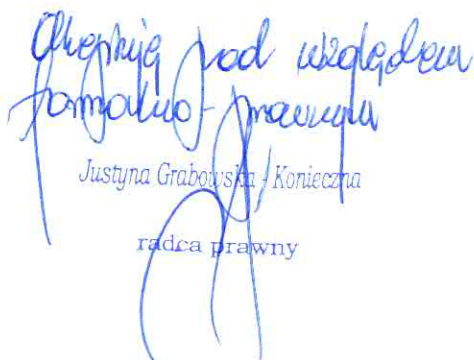 Akceptuję pod względem
formalno-prawnym
Justyna Grabowska-Konieczna
radca prawny